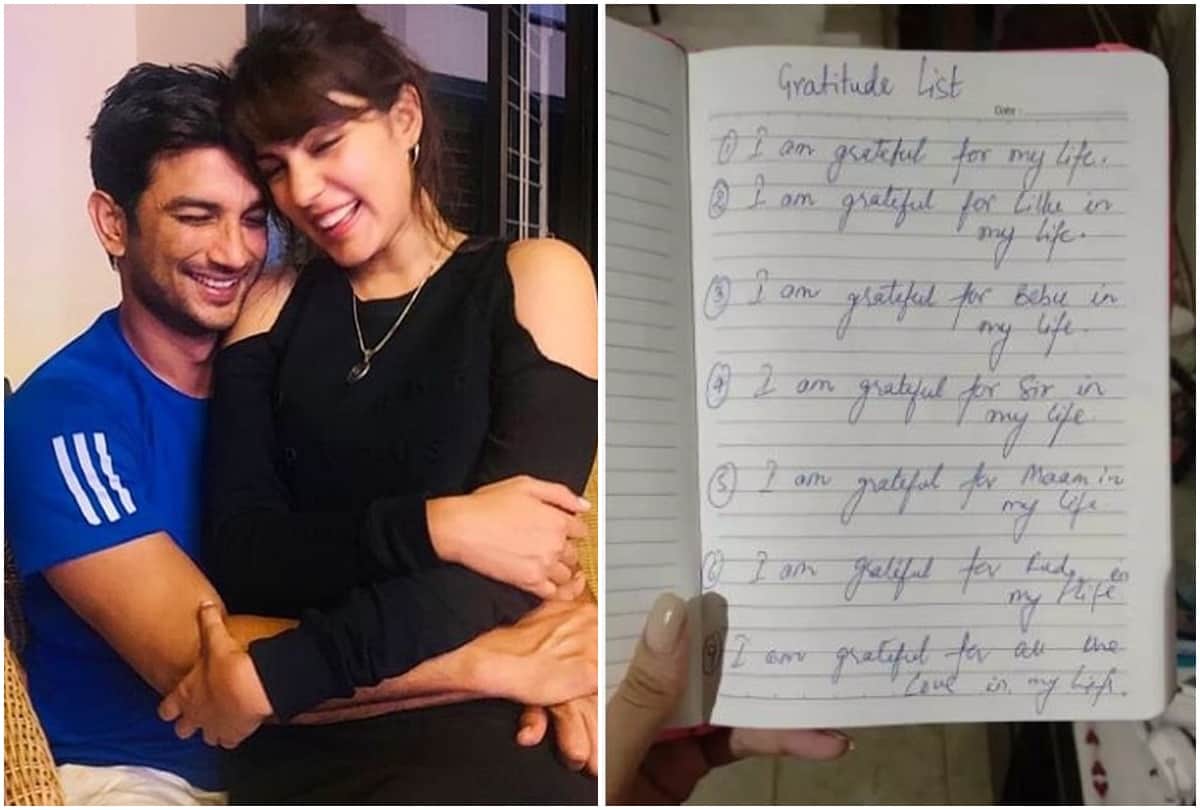 Gratitude List
Date :
① I am grateful for my life.
② I am grateful for Lillu in
my life.
③ I am grateful for Bebu in
my life.
④ I am grateful for Sir in
my life.
⑤ I am grateful for Maam in
my life
⑥ I am grateful for in
my life
⑦ I am grateful for all the
Love in my life.